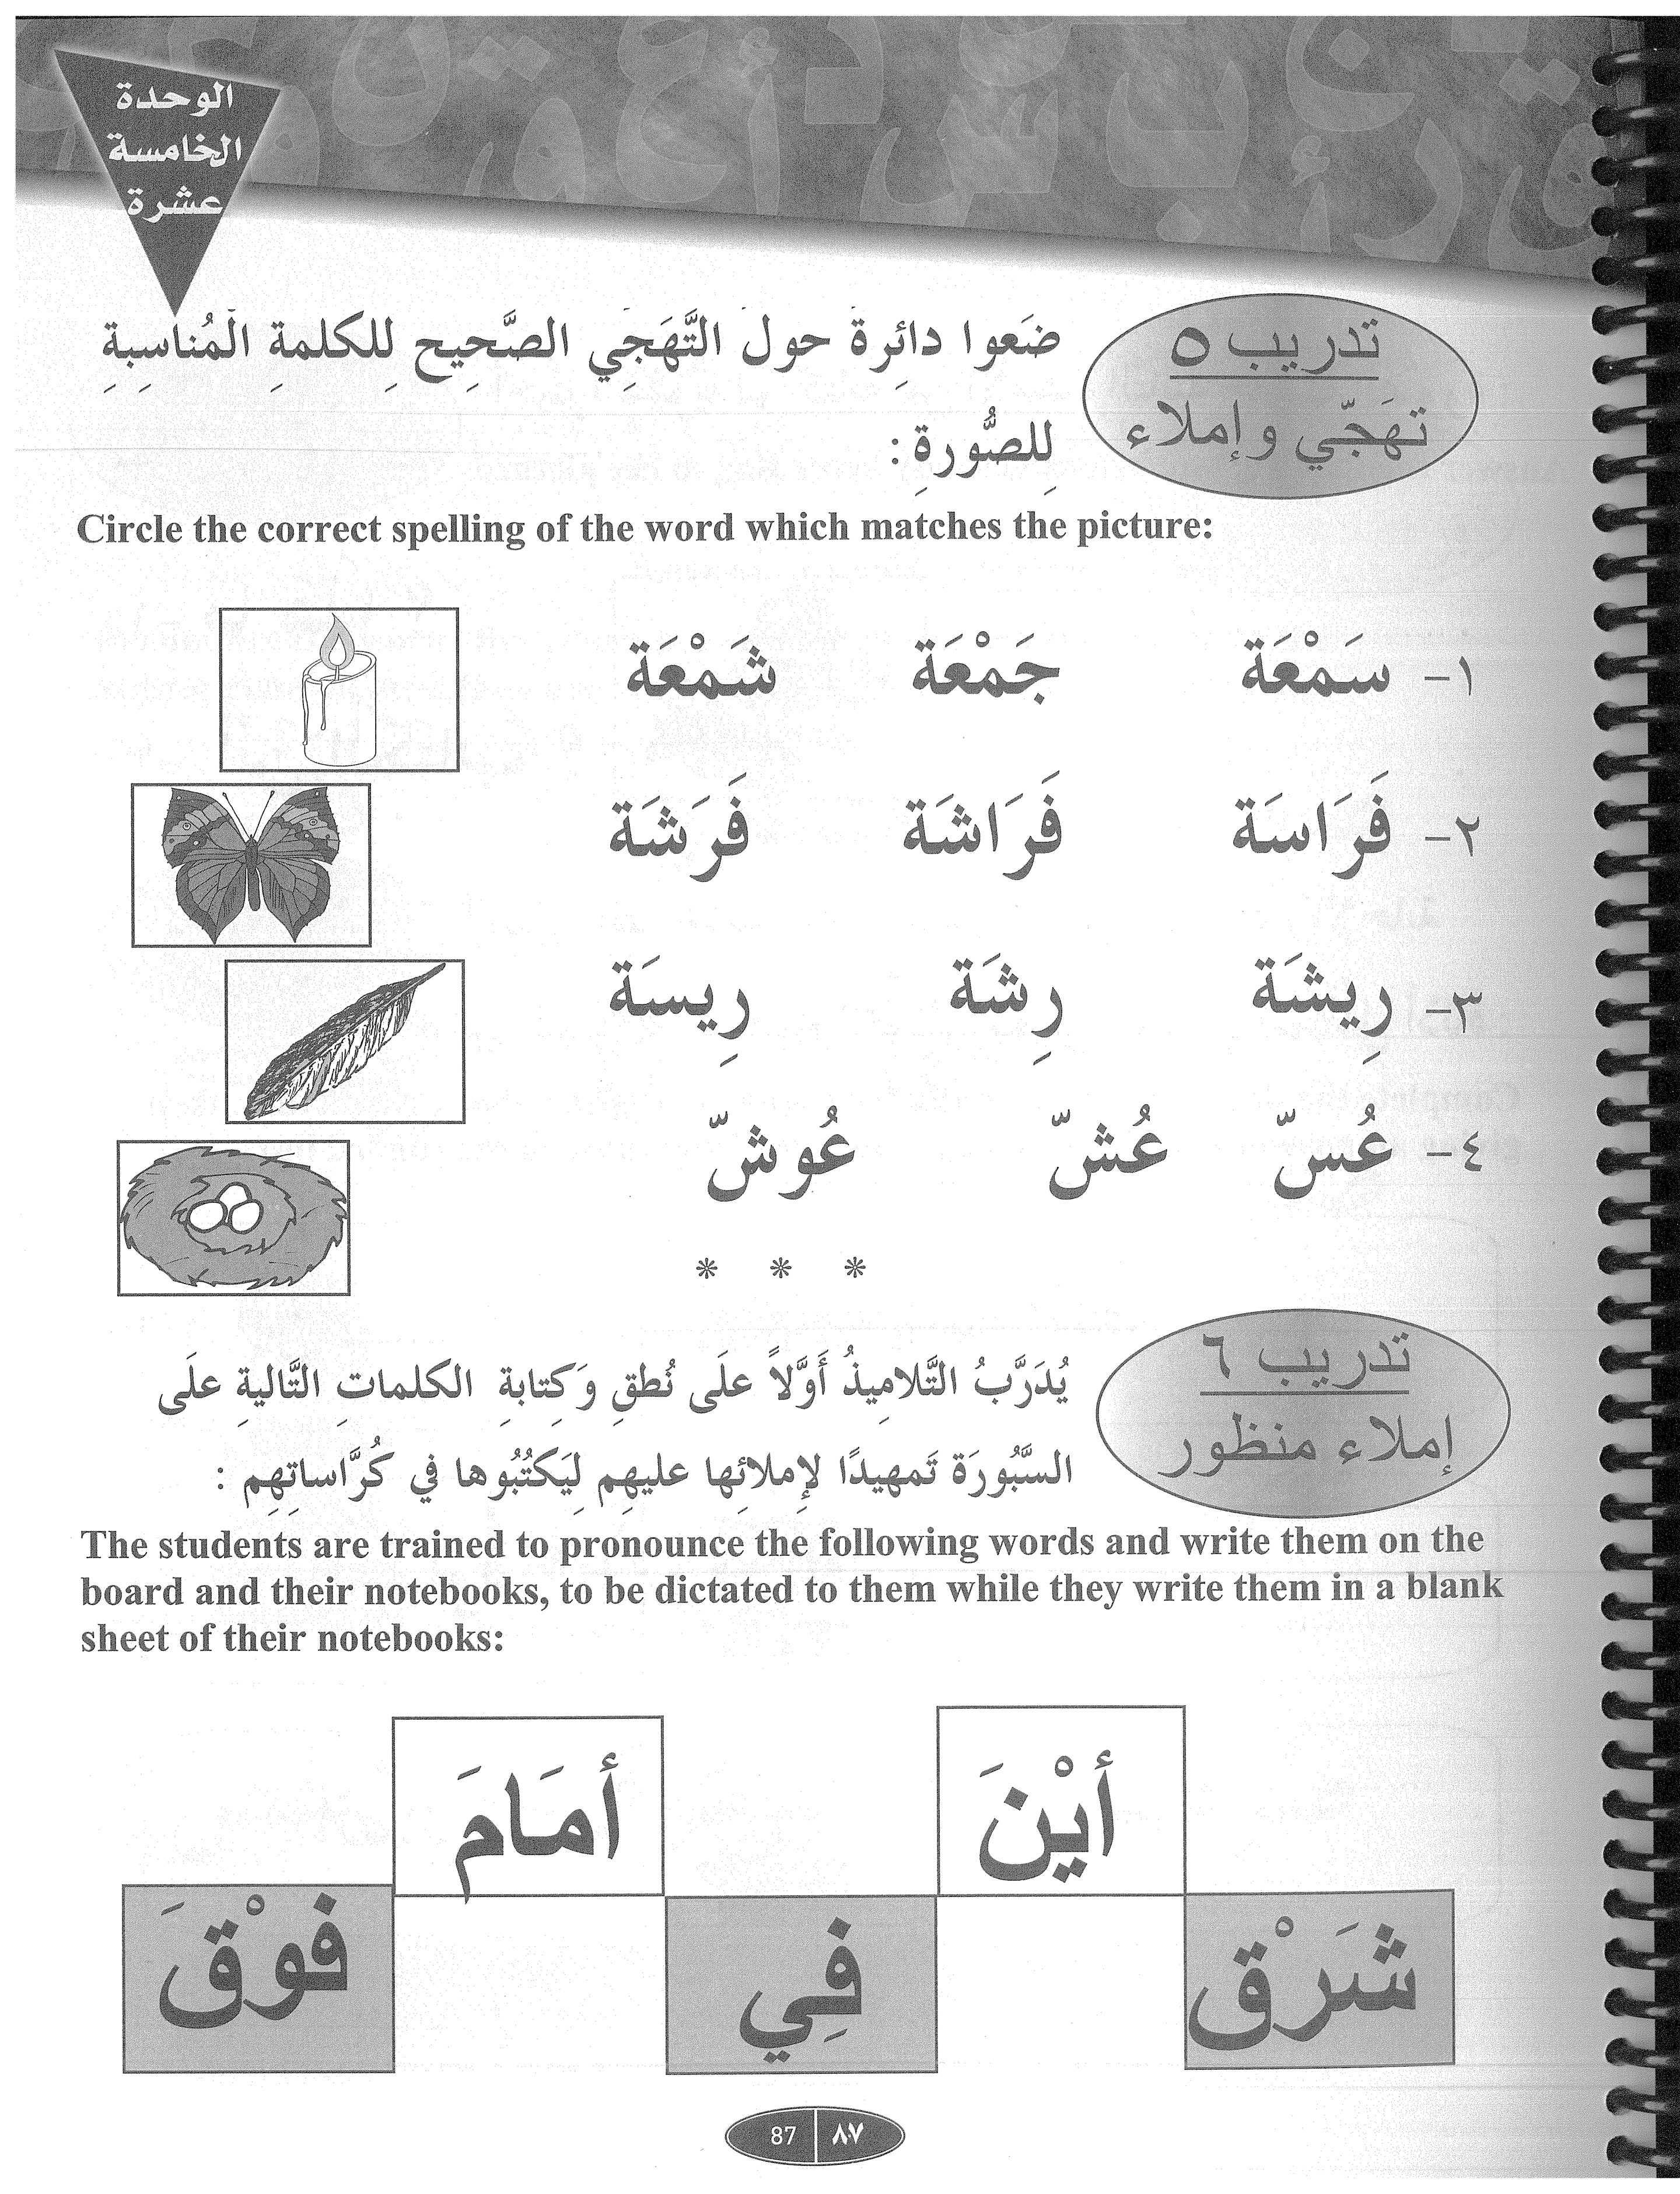 الوحدة
الخامسة
عشرة
تدريب ٥
تهَجّي وإملاء
ضَعوا دائِرةَ حولَ التَّهَجِّي الصَّحِيحِ لِلكلمةِ الْمُناسِبةِ
لِلصُّورةِ :
Circle the correct spelling of the word which matches the picture:
١- سَمْعَة جَمْعَة شَمْعَة
٢- فَرَاسَة فَرَاشَة فَرَشَة
٣- رِيشَة رِشَة رِيسَة
٤- عُسّ عُشّ عُوشّ
* * *
تدريب ٦
إملاء منظور
يُدَرَّبُ التَّلامِيذُ أَوَّلاً علَى نُطقِ وَكِتابةِ الكلماتِ التَّاليةِ علَى
السَّبُورَة تَمهيدًا لإِملائِها عليهِم لِيَكتُبُوها في كُرَّاساتِهِم :
The students are trained to pronounce the following words and write them on the
board and their notebooks, to be dictated to them while they write them in a blank
sheet of their notebooks:
أيْنَ أمَامَ
شَرْق فِي فوْقَ
87 ٨٧